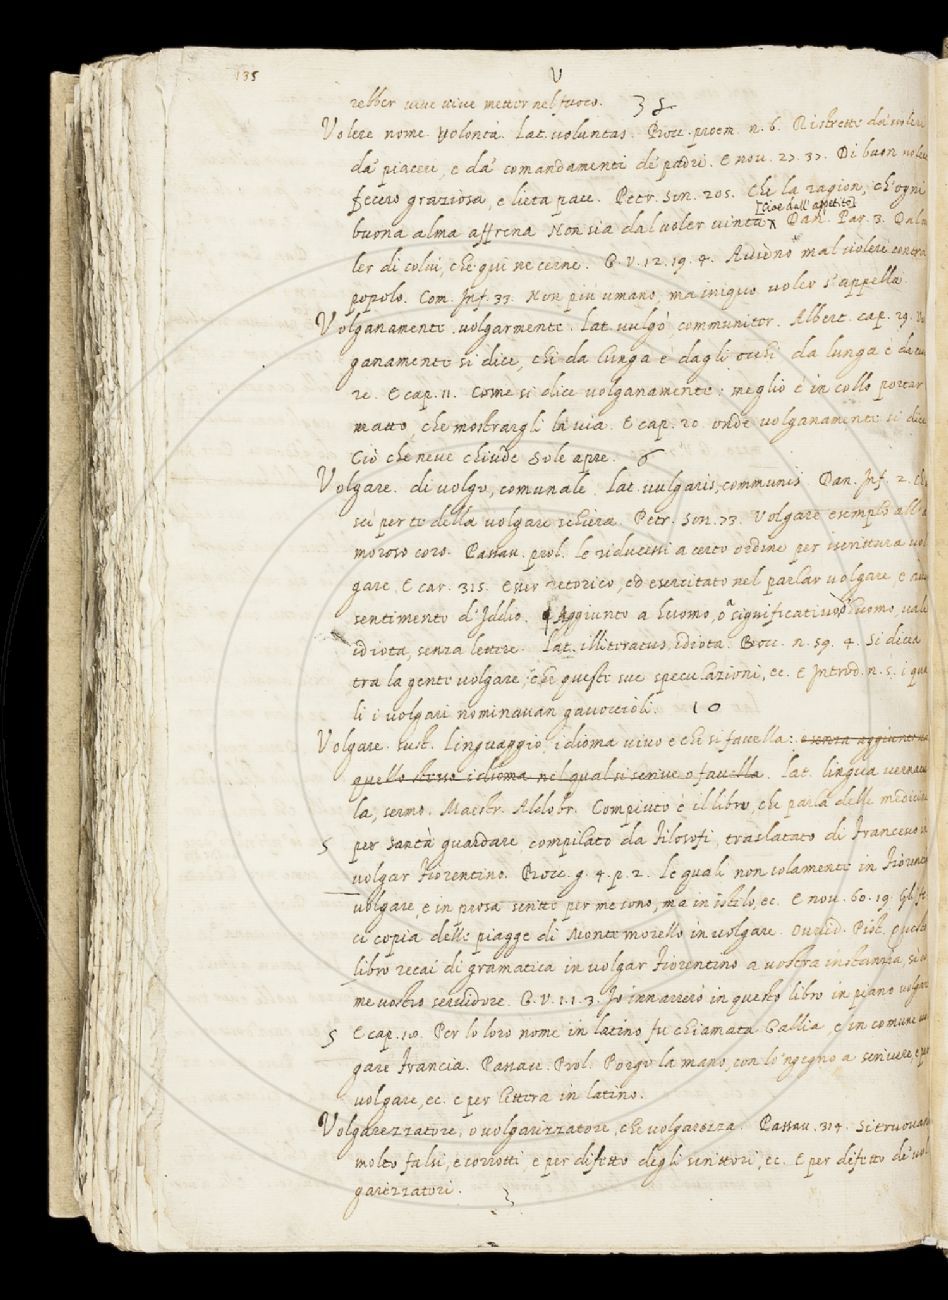 135
V
rebber vive vive metter nel fuoco. 35
Volere nome. Volontà. Lat. voluntas. Bocc. proem. n. 6. Ristrette da' voleri
da' piaceri, e da' comandamenti de' padri. E nov. 27. 37. Di buon volere
fecero graziosa, e lieta pace. Petr. Son. 205. Che la ragion, ch'ogni
[Cioè dall'appetito]
buona alma affrena Non sia dal voler vinta Dan. Par. 3. Dal vo
ler di colui, che qui ne cerne. G. V. 12. 19. 4. Avieno mal volere contra
popolo. Com. Inf. 33. Non più umano, ma iniquo voler s'appella.
Volganamente. volgarmente. Lat. vulgò, communiter. Albert. cap. 29. Vo
ganamente si dice, chi da lunga è dagli occhi, da lunga è da cuo
re. E cap. 11. Come si dice volganamente: meglio è in collo portar
matto, che mostrargli la via. E cap. 20. onde volganamente si dice
Ciò che neve chiude Sole apre. 6
Volgare. di volgo, comunale. Lat. vulgaris, communis Dan. Inf. 2. Ch'u
scì per te della volgare schiera. Petr. Son. 73. Volgare esemplo all'a
moroso coro. Passav. prol. le riducessi a certo ordine per iscrittura vol
gare. E car. 315. esser retorico, ed esercitato nel parlar volgare, e aver
sentimento d'Iddio. Aggiunto a huomo, o a significativo d'huomo, vale
idiota, senza lettere. Lat. illiteratus, idiota. Bocc. n. 59. 4. Si diceva
tra la gente volgare, che queste sue speculazioni, ec. E Introd. n. 5. i qua
li i volgari nominavan gavoccioli. 10
Volgare. sust. linguaggio, idioma vivo e che si favella: e senza aggiunto va
quello stesso idioma nel qual si scrive o favella. Lat. lingua vernacu
la, sermo. Maestr. Aldobr. Compiuto è il libro, che parla delle medicine
5 per santà guardare compilato da Filosofi, traslatato di Francesco in
volgar Fiorentino. Bocc. g. 4. p. 2. le quali non solamente in Fiorentin
volgare, e in prosa scritte per me sono, ma in istilo, ec. E nov. 60. 19. Gli fe
ci copia delle piagge di Monte morello in volgare. Ovvid. Pist. Questo
libro recai di gramatica in volgar Fiorentino a vostra instanzia, sì co
me vostro servidore. G. V. 1. 1. 3. Io innarrerò in questo libro in piano volgare
5 E cap. 10. Per lo loro nome in latino fu chiamata Gallia, e in comune vol
gare Francia. Passav. Prol. Porgo la mano, con lo 'ngegno a scrivere, e per
volgare, ec. e per lettera in latino.
Volgarezzatore, o volgarizzatore, che volgarezza. Passav. 314. Si truovano
molto falsi, e corrotti, e per difetto degli scrittori, ec. E per difetto de' vol
garezzatori. 3